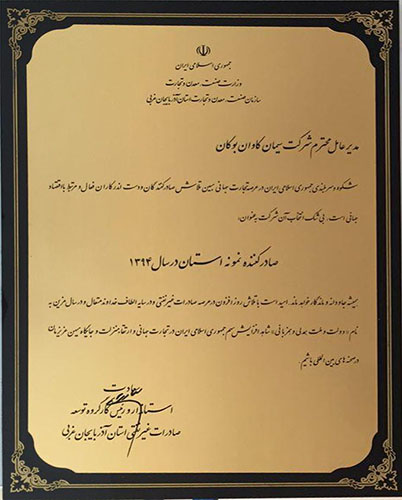 جمهوری اسلامی ایران
وزارت صنعت، معدن و تجارت
سازمان صنعت، معدن و تجارت استان آذربایجان غربی
مدیر عامل محترم شرکت سیمان کاوان بوکان
شکوه و سربلندی جمهوری اسلامی ایران در عرصه تجارت جهانی رهین تلاش صادرکنندگان و دست اندرکاران فعال و مرتبط با اقتصاد
جهانی است. بی شک انتخاب آن شرکت به عنوان:
صادرکننده نمونه استان در سال ۱۳۹۴
همیشه جاودانه و ماندگار خواهد ماند. امید است با تلاش روزافزون در عرصه صادرات غیرنفتی و در سایه الطاف خداوند متعال و در سال مزین به
نام «دولت و ملت همدلی و همزبانی» شاهد افزایش سهم جمهوری اسلامی ایران در تجارت جهانی و ارتقاء منزلت و جایگاه میهن عزیزمان
در صحنه های بین المللی باشیم.
سعادت
استاندار و رئیس کارگروه توسعه
صادرات غیرنفتی استان آذربایجان غربی